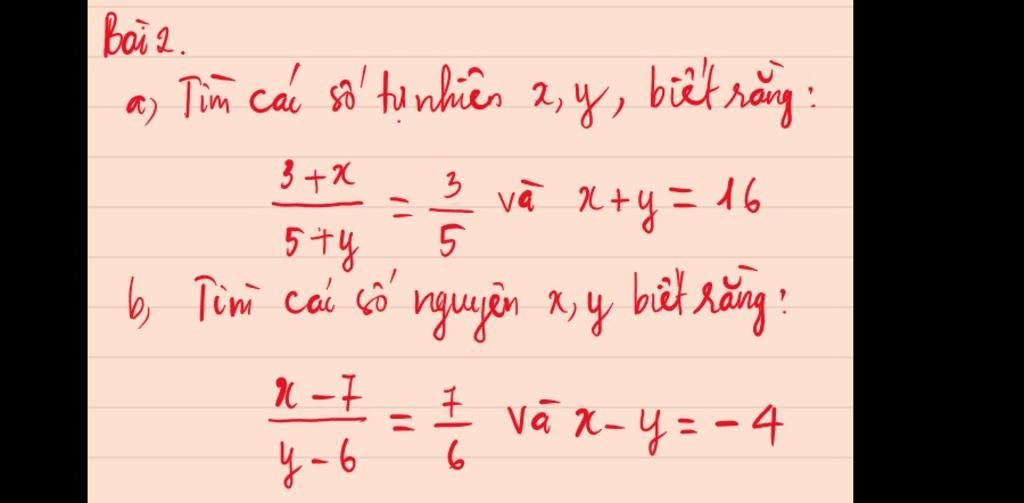 Bài 2.
a) Tìm các số tự nhiên x, y, biết rằng:
3+x / 5+y = 3 / 5 và x+y = 16
b, Tìm các số nguyên x, y biết rằng:
x-7 / y-6 = 7 / 6 và x-y = -4